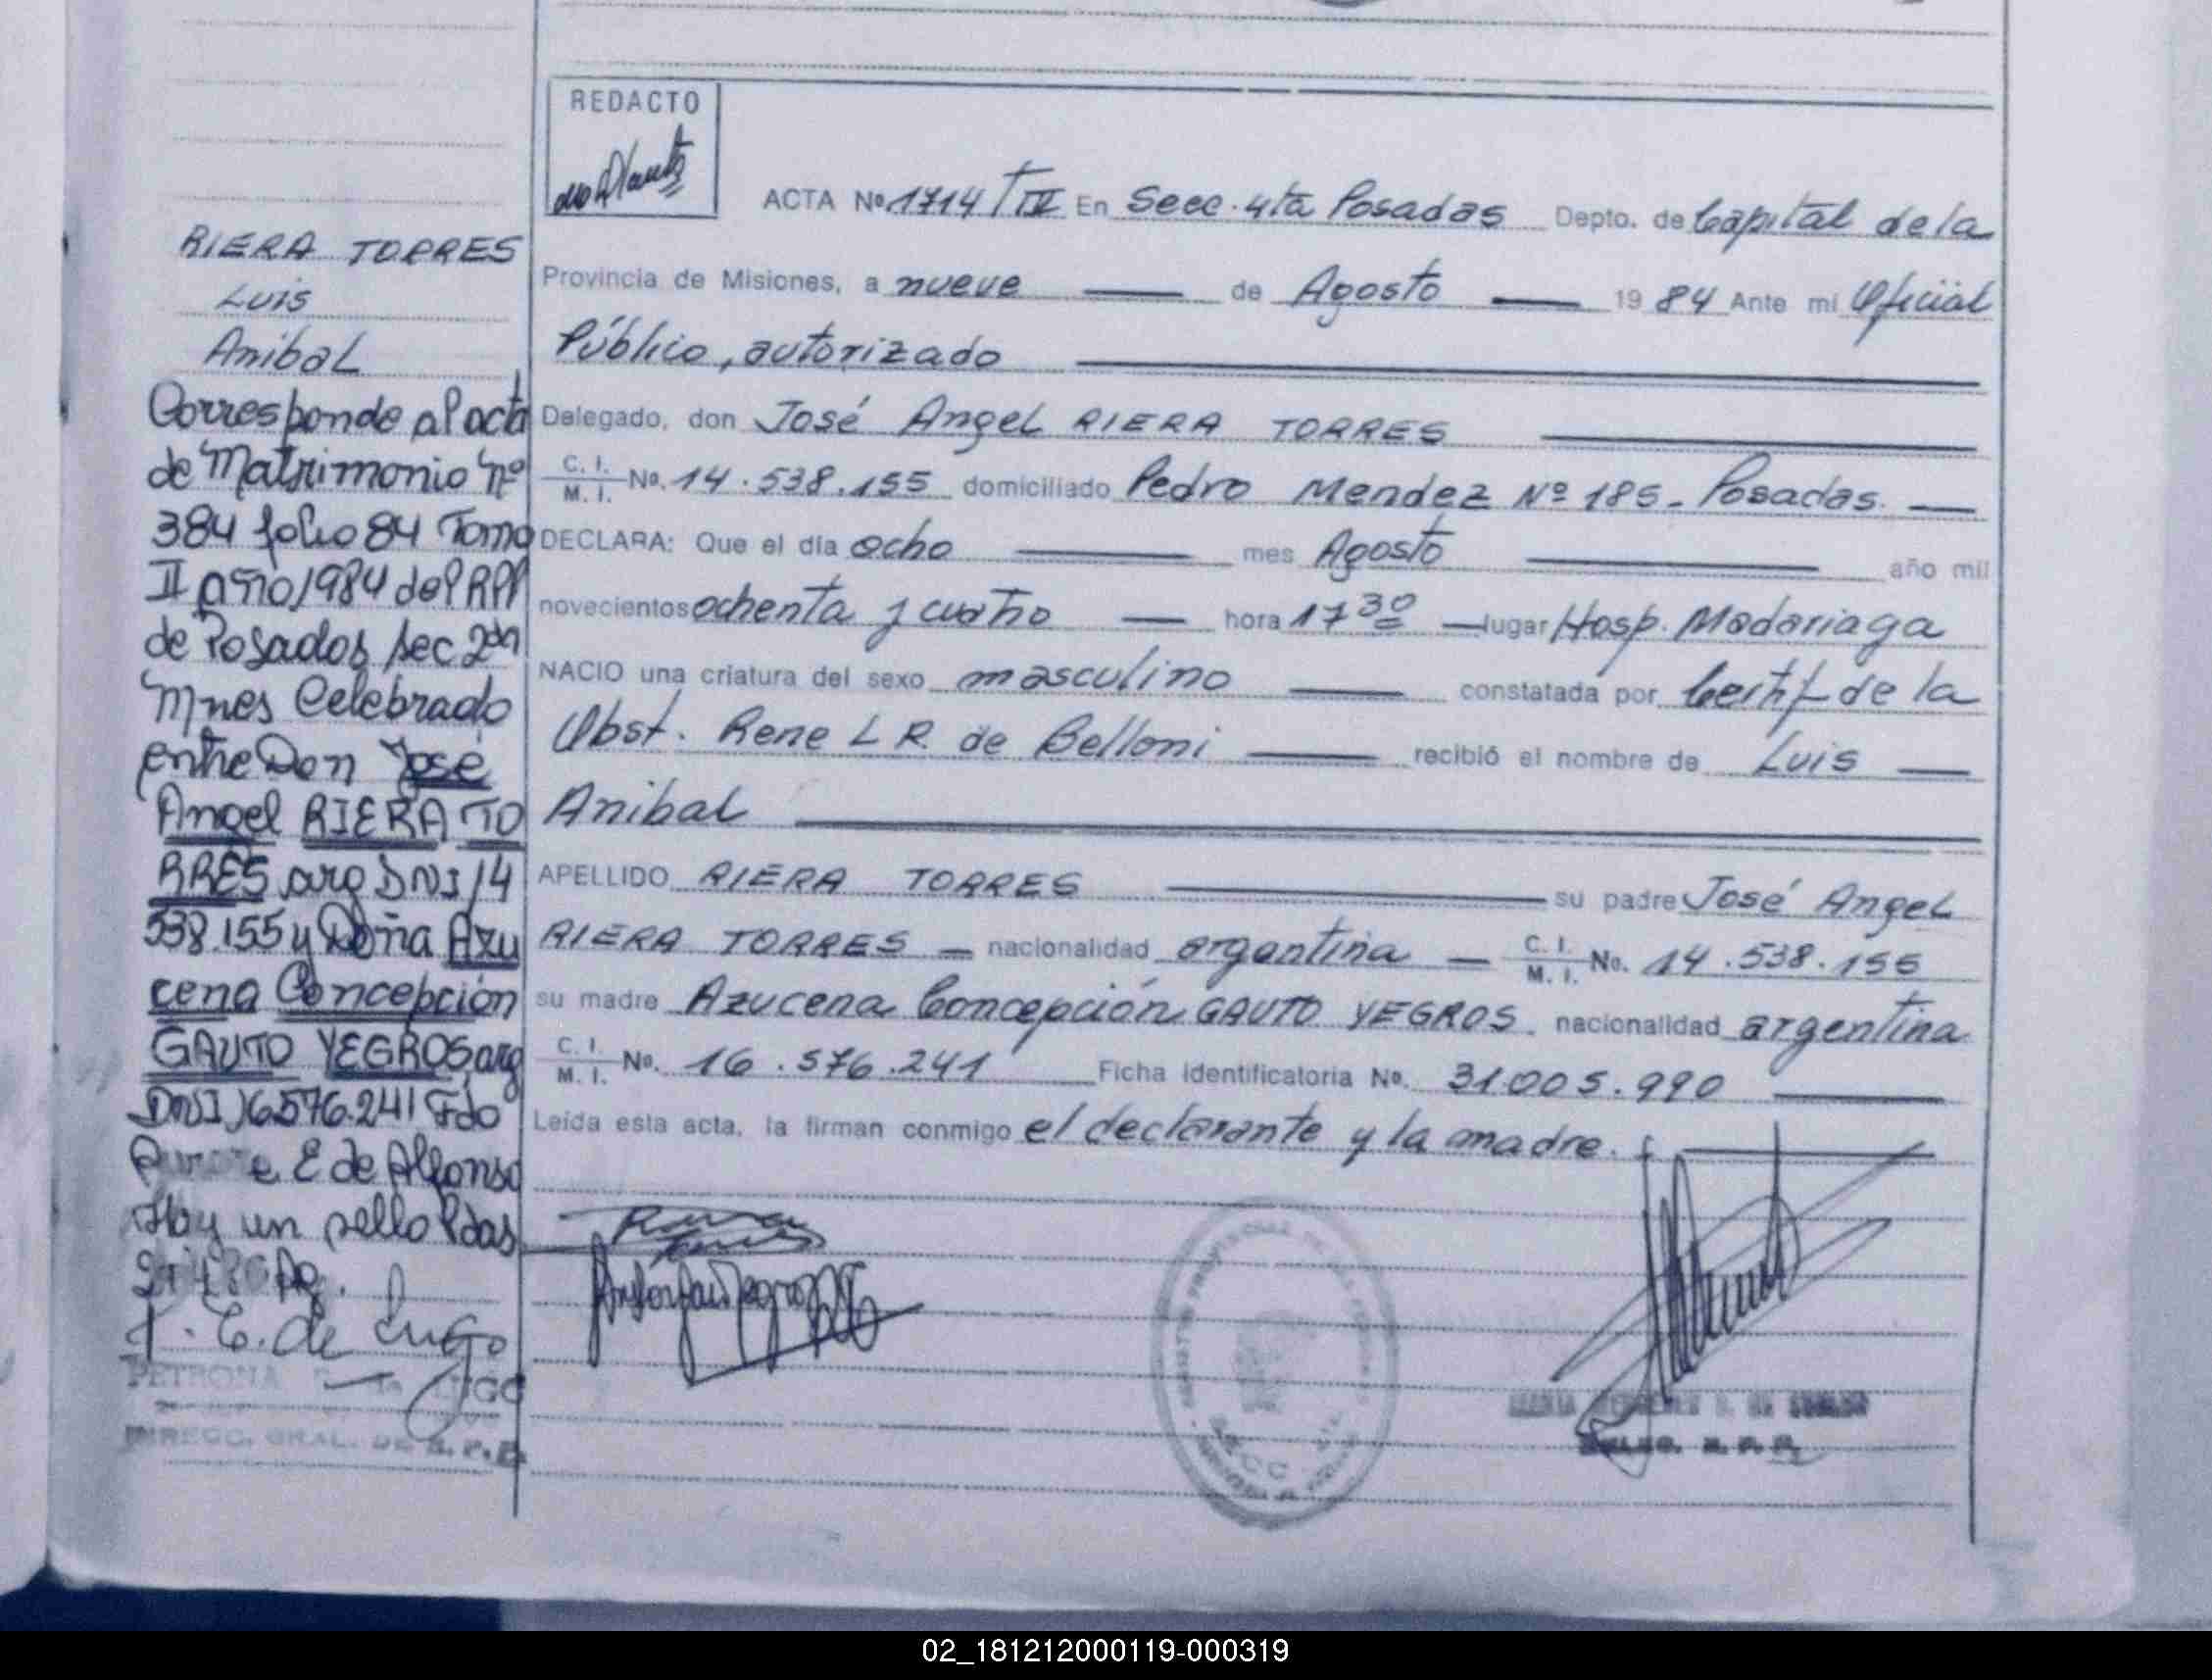 REDACTO
RIERA TORRES
Luis
Anibal
Corresponde al acta
de Matrimonio nº
384 folio 84 Tomo
II año 1984 del RPP
de Posadas sec 2da
Mnes Celebrado
entre Don José
Angel RIERA TO
RRES arg DNI 14
538.155 y Doña Azu
cena Concepción
GAUTO YEGROS arg
DNI 16576.241 Fdo
E de Alfonso
Hay un sello Pdas
PETRONA
DIRECC. GRAL. DE R. P. P.
ACTA Nº 1714/TIV En Secc. 4ta Posadas Depto. de Capital de la
Provincia de Misiones, a nueve — de Agosto — 1984 Ante mi Oficial
Público, autorizado —
Delegado, don José Angel RIERA TORRES —
C. I. M. I. No. 14.538.155 domiciliado Pedro Mendez Nº 185 - Posadas. —
DECLARA: Que el día ocho — mes Agosto — año mil
novecientos ochenta y cuatro — hora 17 30 — lugar Hosp. Madariaga
NACIO una criatura del sexo masculino — constatada por Certif de la
Obst. Rene L R. de Belloni — recibió el nombre de Luis —
Anibal —
APELLIDO RIERA TORRES — su padre José Angel
RIERA TORRES — nacionalidad argentina — C. I. M. I. No. 14.538.155
su madre Azucena Concepción GAUTO YEGROS. nacionalidad argentina
C. I. M. I. No. 16.576.241 Ficha identificatoria No. 31.005.990 —
Leída esta acta, la firman conmigo el declarante y la madre. —
02_181212000119-000319